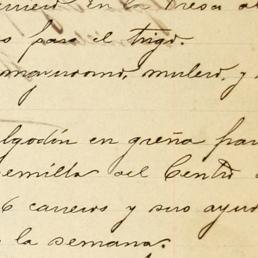 en la Presa
para el trigo.
mayordomo, mulero, y
algodón en greña para
semilla del Centro
6 carreros y sus ayud
la semana.